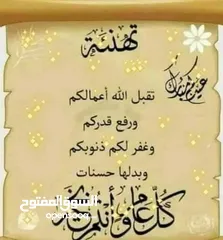 تهنئة
عيدكم مبارك
تقبل الله أعمالكم
ورفع قدركم
وغفر لكم ذنوبكم
وبدلها حسنات
السوق المفتوح
كل عام وأنتم بخير